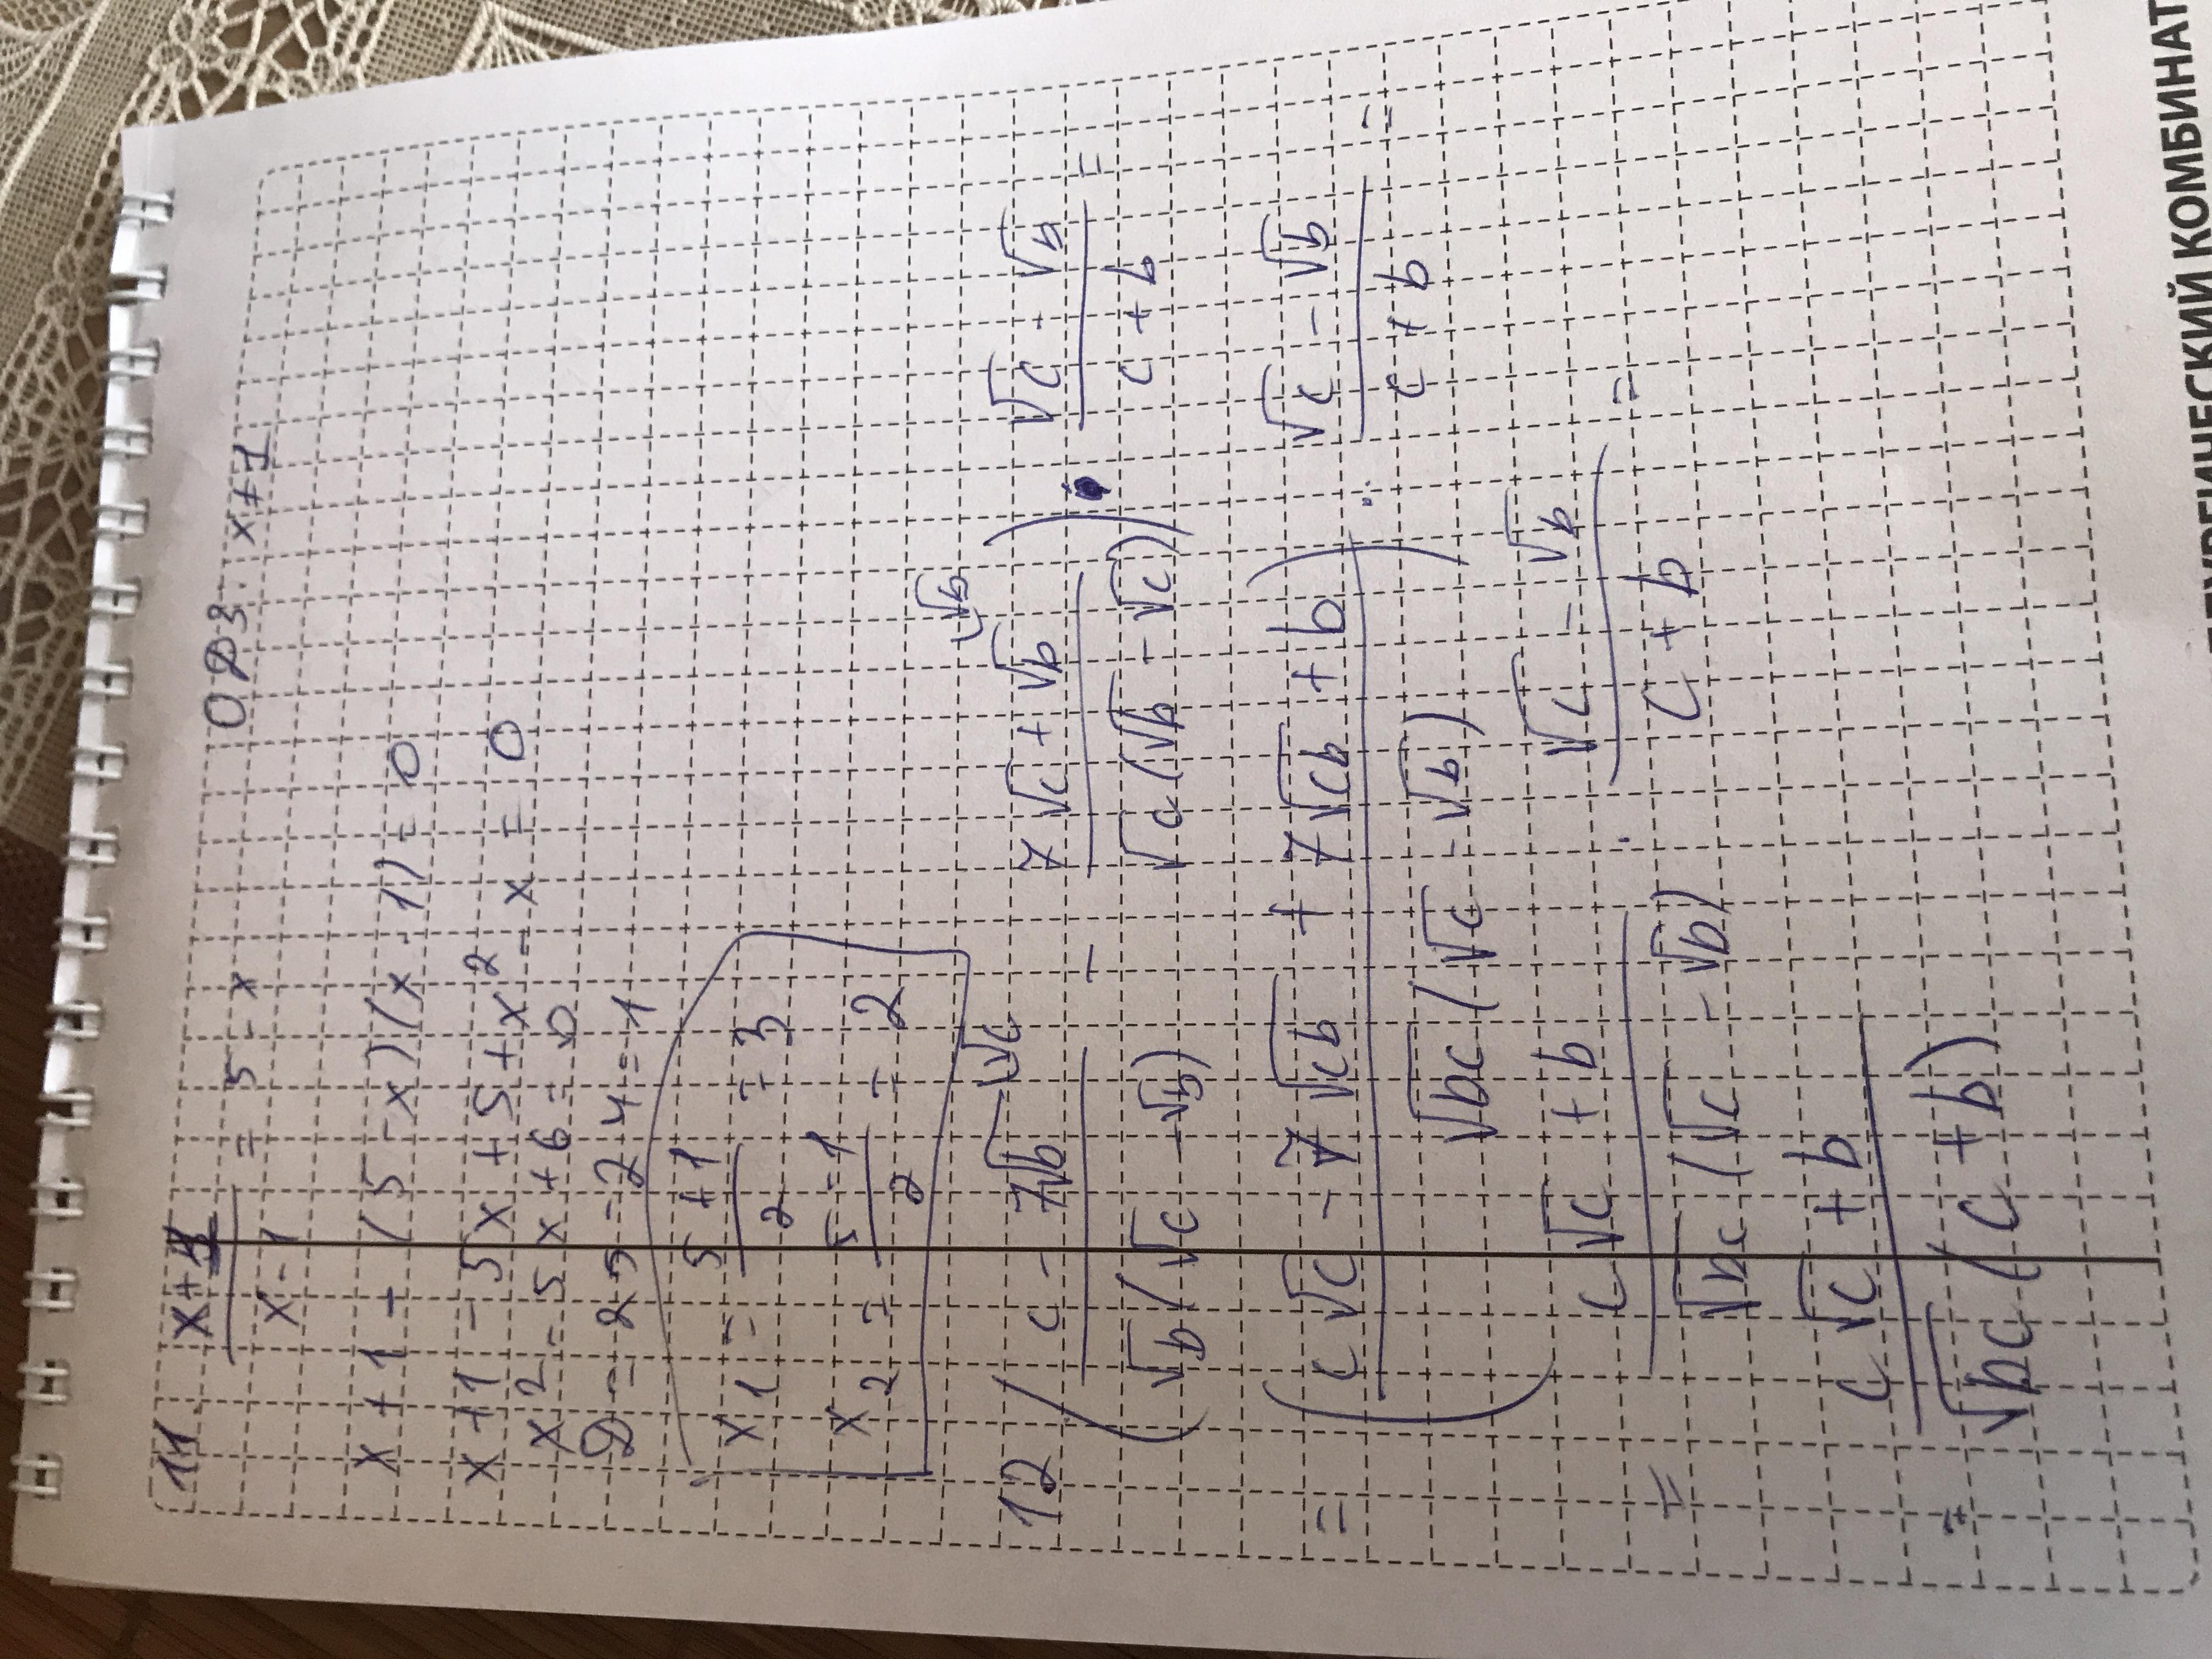 11. (x+1)/(x-1) = 5 - x   ОДЗ: x≠1
x + 1 - (5 - x)(x - 1) = 0
x + 1 - 5x + 5 + x² - x = 0
x² - 5x + 6 = 0
D = 25 - 24 = 1
x1 = (5+1)/2 = 3
x2 = (5-1)/2 = 2
12 ((c - 7√b)/(√b(√c - √b)) - (7√c + √b)/(√c(√b - √c))) · (√c - √b)/(c + b) =
= ((c√c - 7√cb + 7√cb + b)/(√bc(√c - √b))) · (√c - √b)/(c + b) =
= (c√c + b)/(√bc(√c - √b)) · (√c - √b)/(c + b) =
= (c√c + b)/(√bc(c + b))
КОМБИНАТ